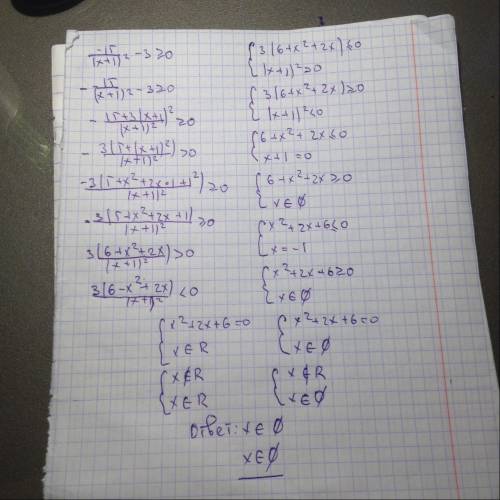 -15/(x+1)² - 3 ≥ 0
- 15/(x+1)² - 3 ≥ 0
- 15+3(x+1)²/(x+1)² ≥ 0
- 3(5+(x+1)²)/(x+1)² ≥ 0
-3(5+x²+2x·1+1²)/(x+1)² ≥ 0
- 3(5+x²+2x+1)/(x+1)² ≥ 0
3(6+x²+2x)/(x+1)² > 0
3(6-x²+2x)/(x+1)² ≤ 0
{ 3(6+x²+2x) ≤ 0
(x+1)² ≥ 0
{ 3(6+x²+2x) ≥ 0
(x+1)² ≤ 0
{ 6+x²+2x ≤ 0
x+1 = 0
{ 6+x²+2x ≥ 0
x ∈ ∅
{ x²+2x+6 ≤ 0
x = -1
{ x²+2x+6 ≥ 0
x ∈ ∅
{ x²+2x+6=0 { x²+2x+6=0
x ∈ R x ∈ ∅
{ x ∉ R { x ∉ R
x ∈ R x ∈ ∅
Ответ: x ∈ ∅
x ∈ ∅